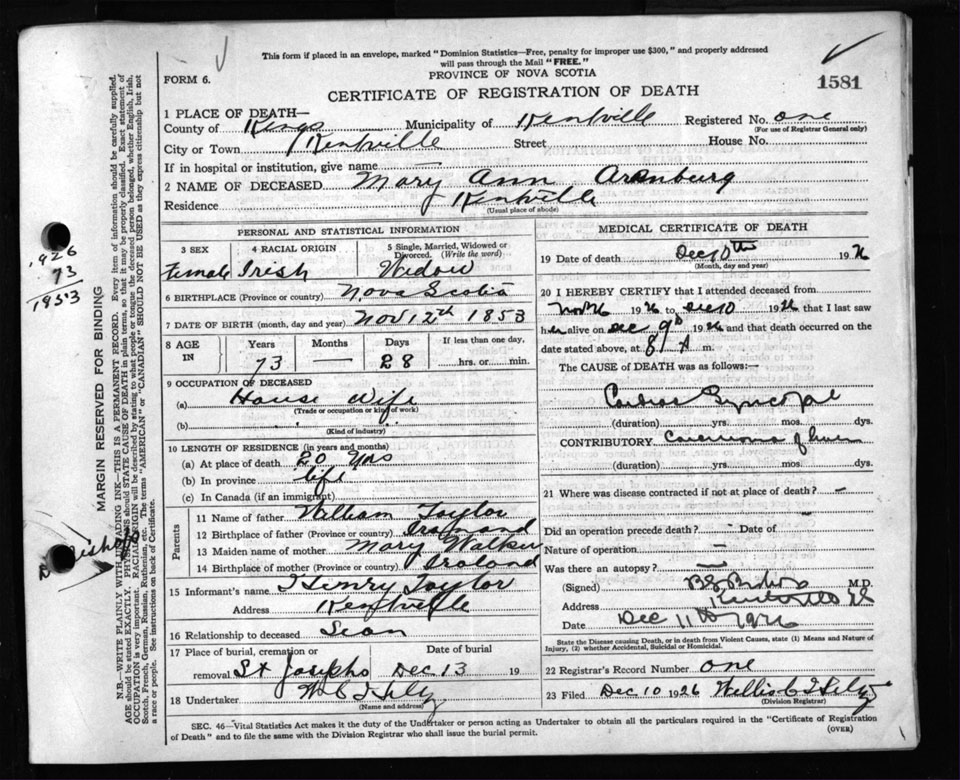 This form if placed in an envelope, marked "Dominion Statistics—Free, penalty for improper use $300," and properly addressed
will pass through the Mail "FREE."
FORM 6.
PROVINCE OF NOVA SCOTIA
1581
CERTIFICATE OF REGISTRATION OF DEATH
1 PLACE OF DEATH—
County of Kings Municipality of Kentville Registered No. one
(For use of Registrar General only)
City or Town Kentville Street House No.
If in hospital or institution, give name
2 NAME OF DECEASED Mary Ann Arenburg
Residence Kentville
(Usual place of abode)
PERSONAL AND STATISTICAL INFORMATION
3 SEX 4 RACIAL ORIGIN 5 Single, Married, Widowed or Divorced. (Write the word)
Female Irish Widow
6 BIRTHPLACE (Province or country) Nova Scotia
7 DATE OF BIRTH (month, day and year) Nov 12th 1853
8 AGE IN Years Months Days If less than one day,
73 — 28 hrs. or min.
9 OCCUPATION OF DECEASED
(a) House Wife
(Trade or occupation or kind of work)
(b)
(Kind of industry)
10 LENGTH OF RESIDENCE (in years and months)
(a) At place of death 20 Yrs
(b) In province life
(c) In Canada (if an immigrant)
Parents
11 Name of father William Taylor
12 Birthplace of father (Province or country)
13 Maiden name of mother Mary Walker
14 Birthplace of mother (Province or country)
15 Informant's name Henry Taylor
Address Kentville
16 Relationship to deceased
17 Place of burial, cremation or removal Date of burial
St Josephs Dec 13 19
18 Undertaker
(Name and address)
MEDICAL CERTIFICATE OF DEATH
19 Date of death Dec 10th 1926
(Month, day and year)
20 I HEREBY CERTIFY that I attended deceased from
1926 to Dec 10 1926 that I last saw
her alive on Dec 9th 1926 and that death occurred on
date stated above, at 8 A m.
The CAUSE of DEATH was as follows:—
Cardiac Syncope
(duration) yrs. mos. dys.
CONTRIBUTORY Carcinoma of liver
(duration) yrs. mos. dys.
21 Where was disease contracted if not at place of death? —
Did an operation precede death? - Date of —
Nature of operation —
Was there an autopsy? —
(Signed) M.D.
Address Kentville
Date Dec 11th 1926
State the Disease causing Death, or in death from Violent Causes, state (1) Means and Nature of
Injury, (2) whether Accidental, Suicidal or Homicidal.
22 Registrar's Record Number one
23 Filed Dec 10 1926
(Division Registrar)
SEC. 46—Vital Statistics Act makes it the duty of the Undertaker or person acting as Undertaker to obtain all the particulars required in the "Certificate of Registration
of Death" and to file the same with the Division Registrar who shall issue the burial permit.
(OVER)
1926
73
1853
MARGIN RESERVED FOR BINDING
N.B.—WRITE PLAINLY WITH UNFADING INK—THIS IS A PERMANENT RECORD. Every item of information should be carefully supplied.
AGE should be stated EXACTLY. PHYSICIANS should STATE CAUSE OF DEATH in plain terms, so that it may be properly classified. Exact statement of
OCCUPATION is very important. RACIAL ORIGIN will be described by stating to what people or tongue the deceased person belonged, whether English, Irish,
Scotch, French, German, Russian, Ruthenian, etc. The terms "AMERICAN" or "CANADIAN" SHOULD NOT BE USED as they express citizenship but not
a race or people. See instructions on back of Certificate.